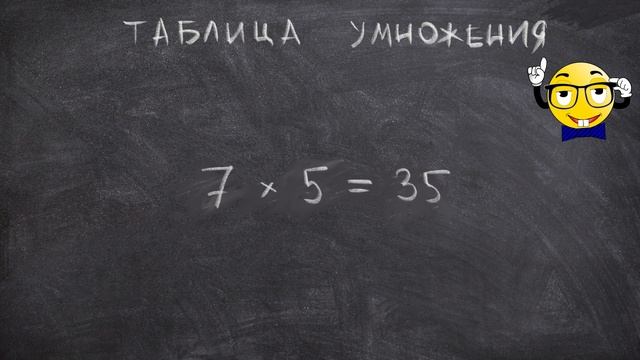 ТАБЛИЦА УМНОЖЕНИЯ
7 × 5 = 35